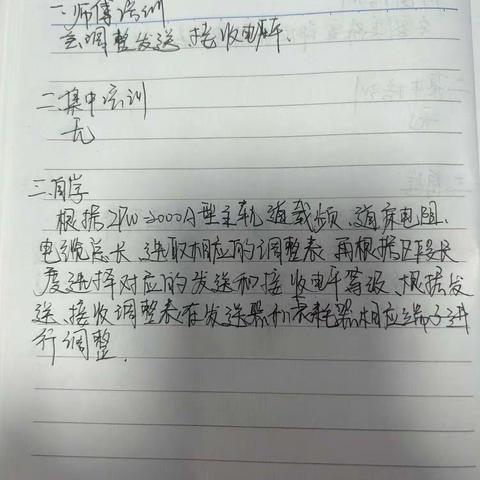 一.师傅培训
会调整发送、接收电平.
二.集中培训
无
三.自学
根据ZPW-2000A型主轨道载频、道床电阻、
电缆总长、选取相应的调整表,再根据区段长
度选择对应的发送和接收电平等级,根据发
送、接收调整表在发送器和衰耗器相应端子进
行调整.